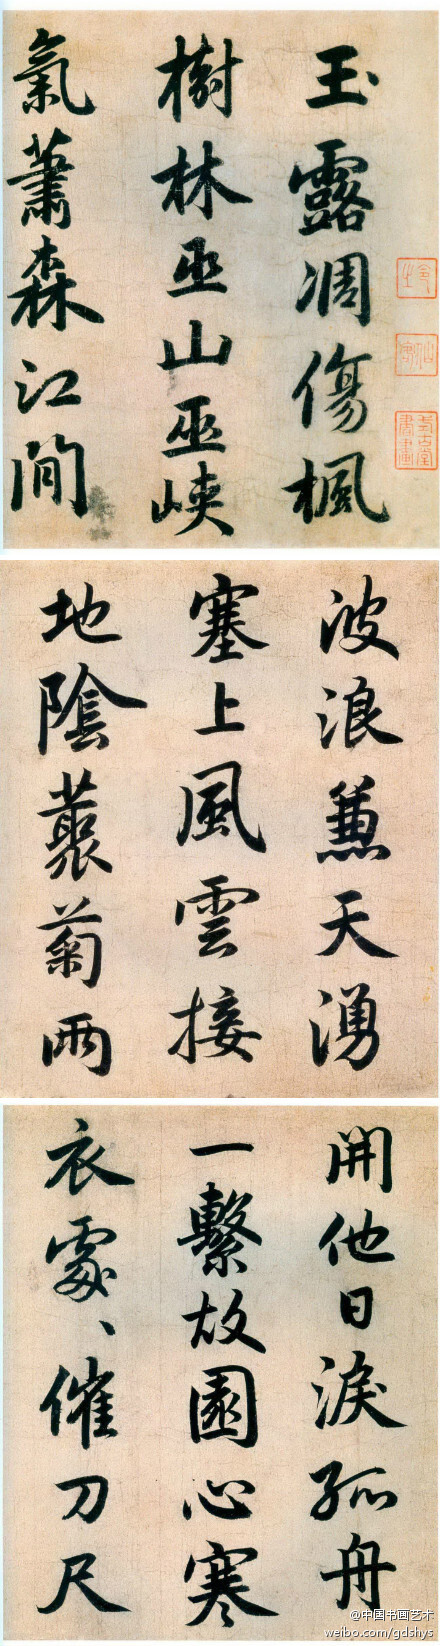 玉露凋傷楓
樹林巫山巫峽
氣蕭森江間
令之
仙客
式古堂書畫
波浪兼天湧
塞上風雲接
地陰藂菊兩
開他日淚孤舟
一繫故園心寒
衣處、催刀尺
@中国书画艺术
weibo.com/gdshys